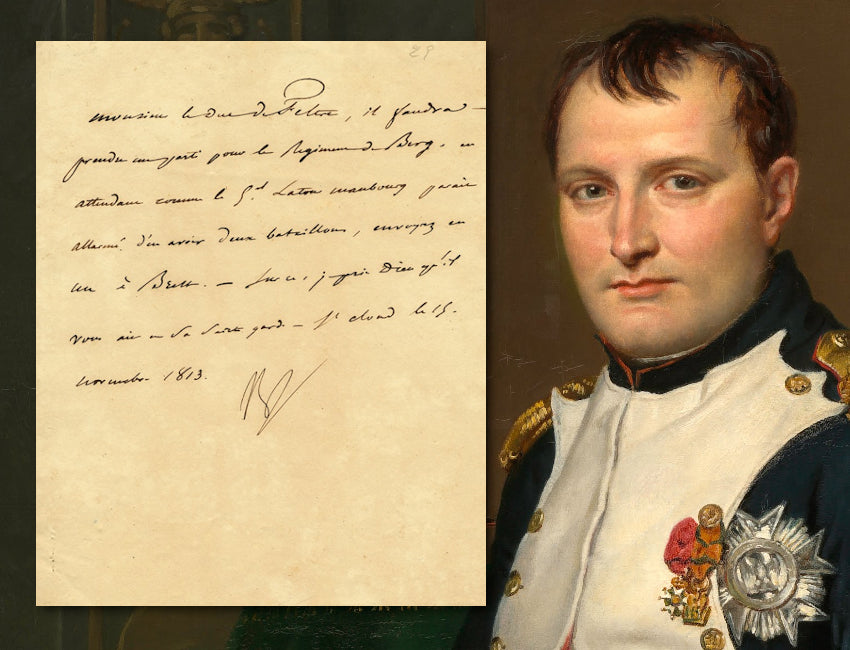 29
monsieur le duc de Feltre, il faudra
prendre un parti pour le Régiment de Berg. en
attendant comme le Gal Latour maubourg parait
allarmé d'en avoir deux bataillons, envoyez en
un à Brest. — Sur ce, je prie Dieu qu'il
vous ait en Sa Sainte garde — St cloud le 15.
novembre 1813.